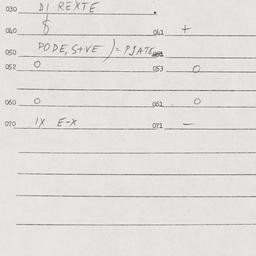 030 DI REXTE
040 041 +
050 PODE, S+VE ) = PJATE
052 0 053 0
060 0 061 0
070 IX E-X 071 —